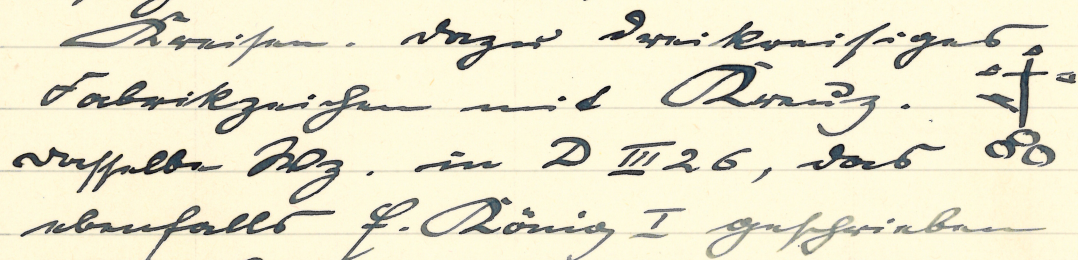 Kreisen. dazu dreikreisiges
Fabrikzeichen mit Kreuz.
dasselbe Wz. in D III 26, das
ebenfalls f. König I geschrieben